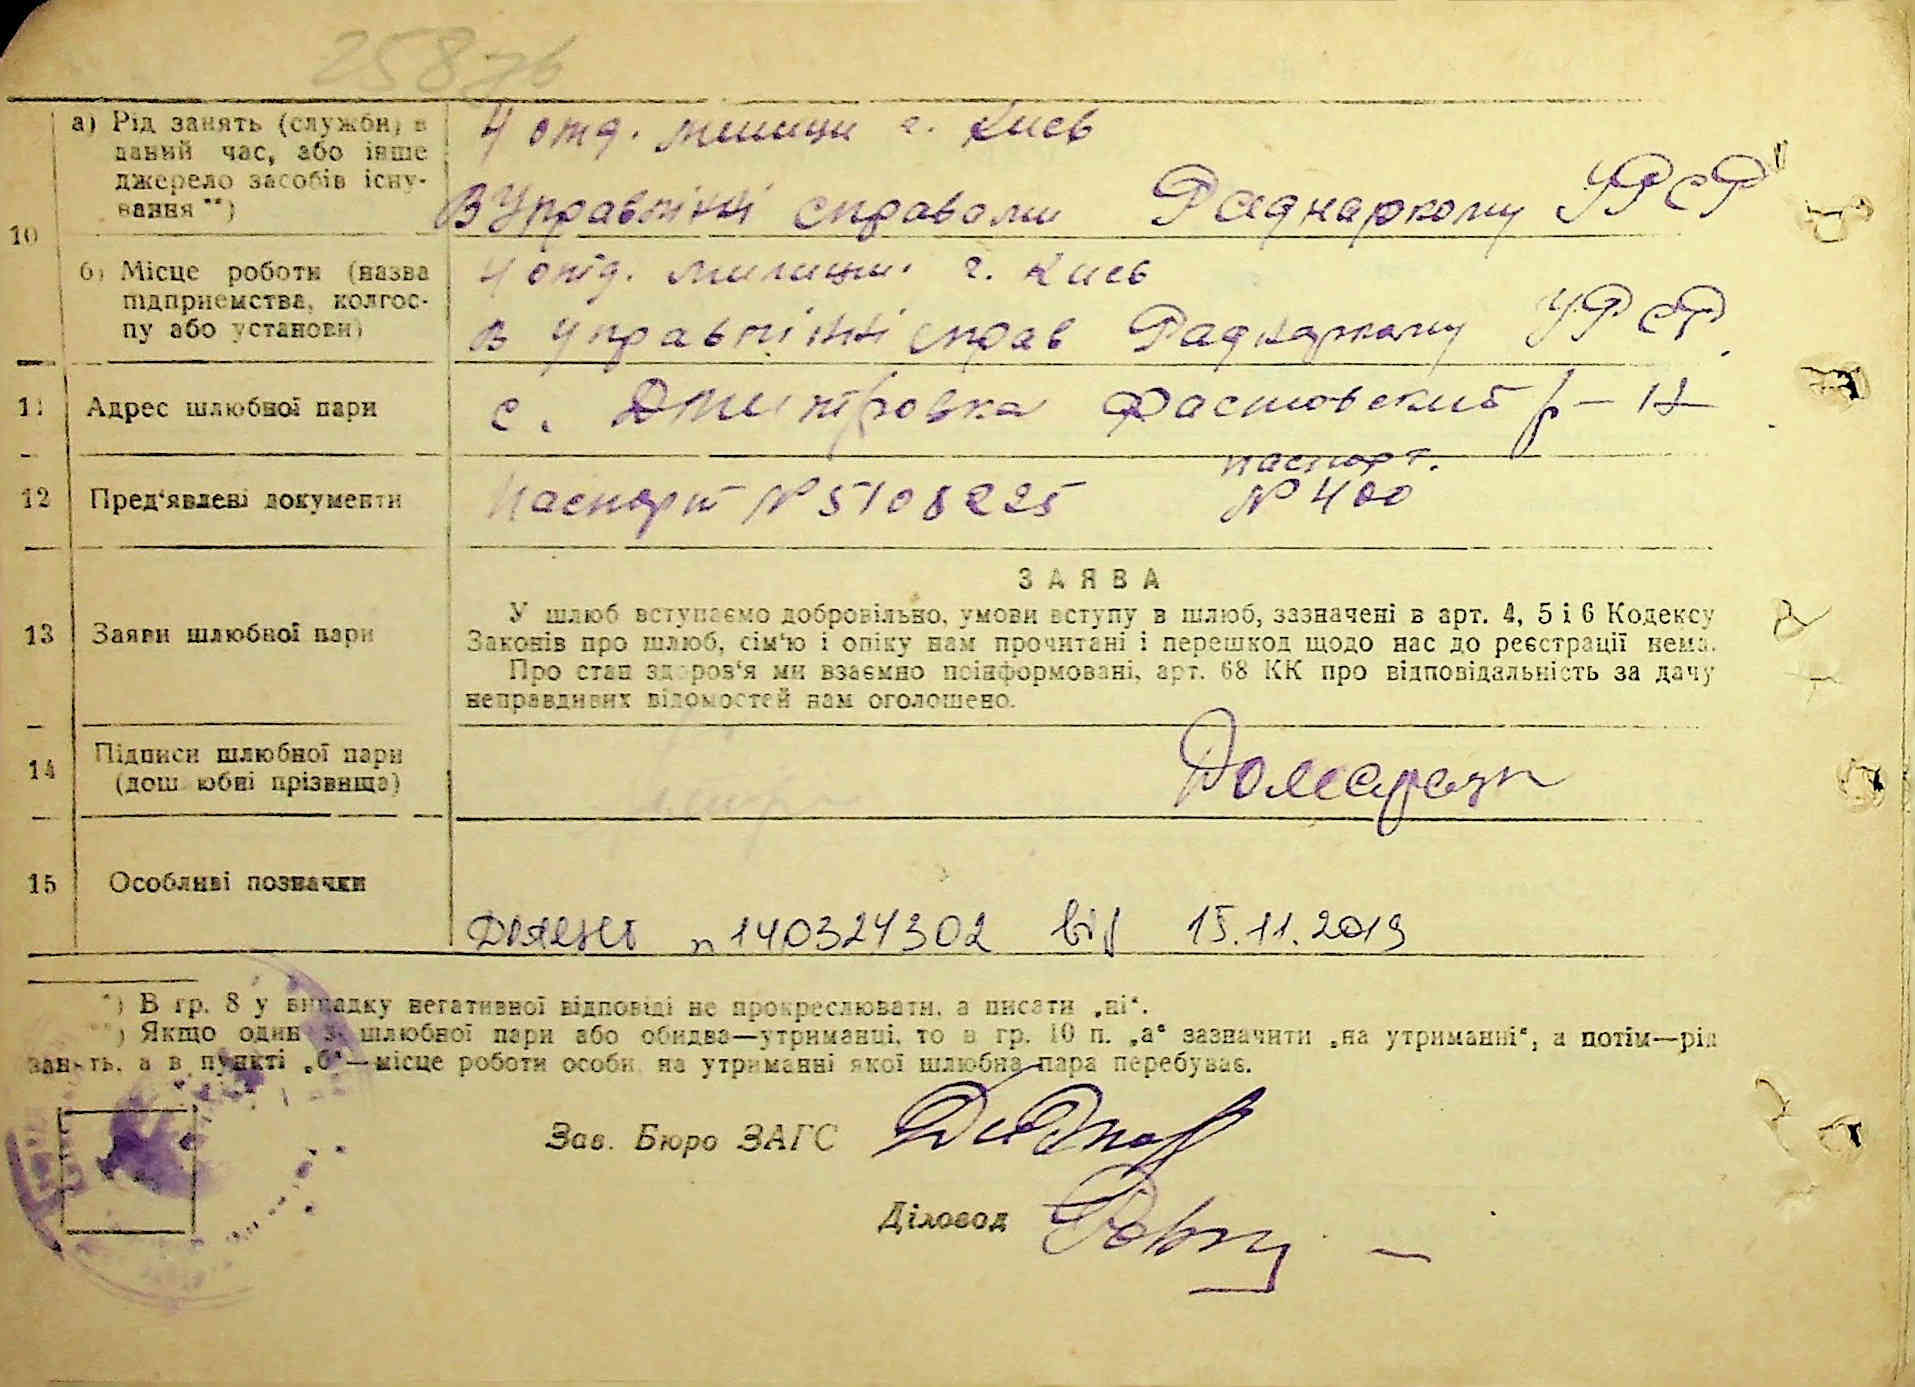 258зв
10
а) Рід занять (служби) в
даний час, або інше
джерело засобів існу-
вання**)
4 отд. милиции г. Киев
В Управлінні справами Раднаркому УРСР
б) Місце роботи (назва
підприємства, колгос-
пу або установи)
4 отд. милиции г. Киев
в Управлінні справ Раднаркому УРСР
11 Адрес шлюбної пари
с. Дмитровка Фастовский р-н
12 Пред'явлені документи
Паспорт № 5108225
паспорт.
№ 400
13 Заяви шлюбної пари
ЗАЯВА
У шлюб вступаємо добровільно, умови вступу в шлюб, зазначені в арт. 4, 5 і 6 Кодексу
Законів про шлюб, сім'ю і опіку нам прочитані і перешкод щодо нас до реєстрації нема.
Про стан здоров'я ми взаємно поінформовані, арт. 68 КК про відповідальність за дачу
неправдивих відомостей нам оголошено.
14 Підписи шлюбної пари
(дошлюбні прізвища)
15 Особливі позначки
140324302 від 15.11.2019
*) В гр. 8 у випадку негативної відповіді не прокреслювати, а писати „ні“.
**) Якщо один з шлюбної пари або обидва—утриманці, то в гр. 10 п. „а“ зазначити „на утриманні“, а потім—рід
занять, а в пункті „б“—місце роботи особи, на утриманні якої шлюбна пара перебуває.
Зав. Бюро ЗАГС
Діловод